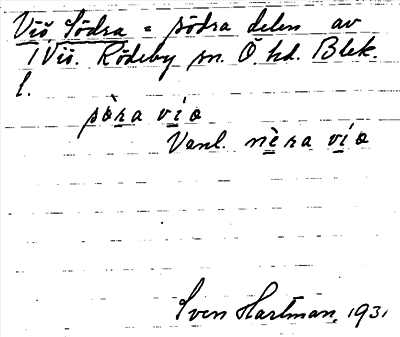 Viö, Södra = södra delen av
1 Viö. Rödeby sn. Ö. hd. Blek.
l.
sø̀ra víɷ
Vanl. nèra víɷ
Sven Hartman, 1931